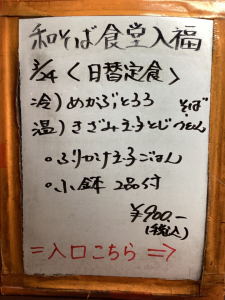 和そば食堂入福
3/24 〈日替定食〉
冷）めかぶとろろ そば
温）きざみ玉子とじうどん
。ふりかけ玉子ごはん
。小鉢 2品付
¥900.-
(税込)
=入口こちら⇒